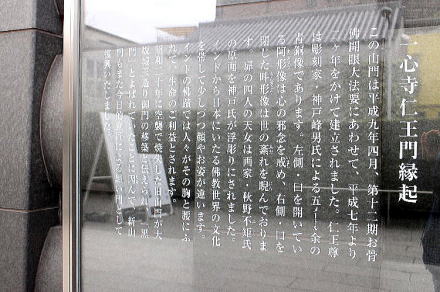 一心寺仁王門縁起
この山門は平成九年四月、第十二期お骨
佛開眼大法要にあわせて、平成七年より
二ヶ年をかけて建立されました。仁王尊
は彫刻家・神戸峰男氏による五㍍余の
青銅像であります。左側・口を開いてい
る阿形像は心の邪念を戒め、右側・口を
閉じた吽形像は世の紊れを睨んでおりま
す。扉の四人の天女は画家・秋野不矩氏
の原画を神戸氏が浮彫りにされました。
インドから日本にいたる佛教世界の文化
を帯して少しづつ顔やお姿が違います。
インドの佛蹟では人々がその胸と腰にふ
れて、生命のご利益とされます。
昭和二十年に空襲で焼失した旧山門が大
坂城三